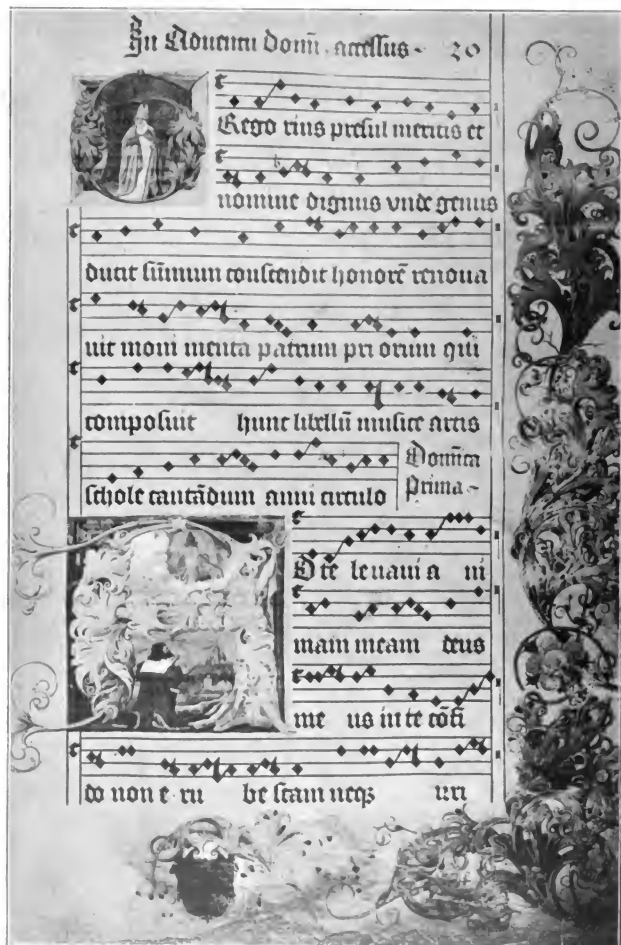 In Aduentu domī. accessus. 20
GRego rius presul meritis et
nomine dignus vnde genus
ducit sūmum conscendit honorē renoua
uit moni menta patrum pri orum qui
composuit hunc libellū musice artis
schole cantādum anni circulo
Domīca
Prima.
AD te leuaui a ni
mam meam deus
me us in te cōfi
do non e ru be scam neqꝫ irri